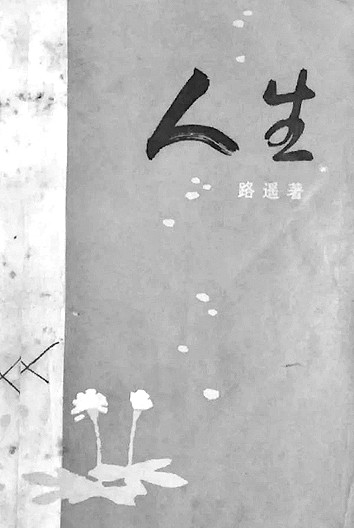 人生
路遥著